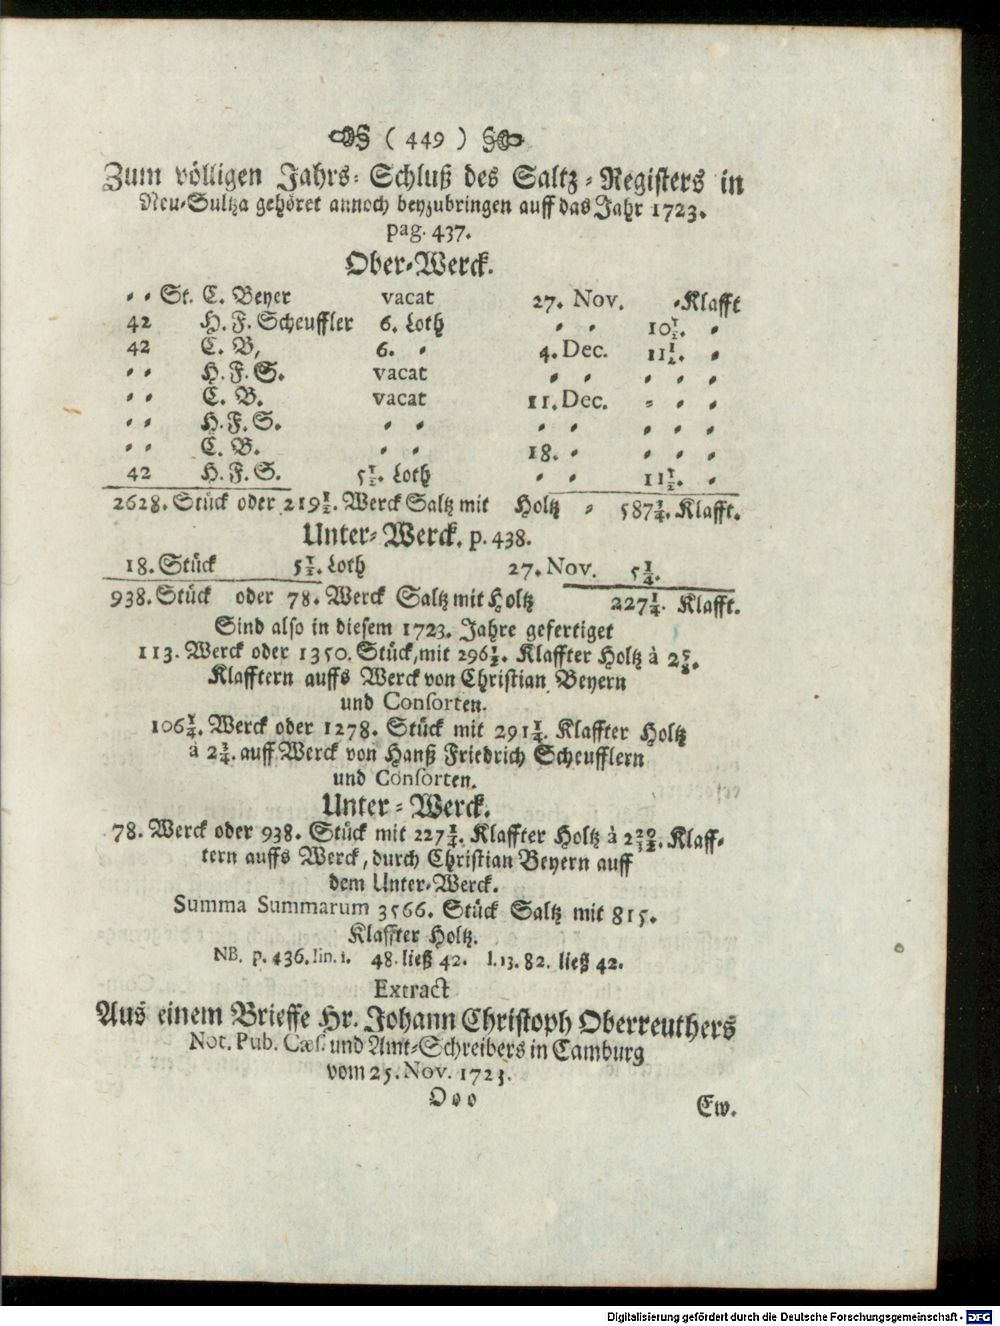 ( 449 )
Zum völligen Jahrs-Schluß des Saltz-Registers in
Neu-Sultza gehöret annoch beyzubringen auff das Jahr 1723.
pag. 437.
Ober-Werck.
- - St. C. Beyer vacat 27. Nov. -Klafft
42 H. F. Scheuffler 6. Loth - - 10½. -
42 C. B, 6. - 4. Dec. 11½. -
- - H. F. S. vacat - - - - -
- - C. B. vacat 11. Dec. - - -
- - H. F. S. - - - - - - -
- - C. B. - - 18. - - - -
42 H. F. S. 5½. Loth - - 11½. -
2628. Stück oder 219½. Werck Saltz mit Holtz - 587¾. Klafft.
Unter-Werck. p. 438.
18. Stück 5½. Loth 27. Nov. 5¼.
938. Stück oder 78. Werck Saltz mit Holtz 227¼. Klafft.
Sind also in diesem 1723. Jahre gefertiget
113. Werck oder 1350. Stück, mit 296½. Klaffter Holtz à 2⅝.
Klafftern auffs Werck von Christian Beyern
und Consorten.
106¼. Werck oder 1278. Stück mit 291¼. Klaffter Holtz
à 2¾. auff Werck von Hanß Friedrich Scheufflern
und Consorten.
Unter-Werck.
78. Werck oder 938. Stück mit 227¼. Klaffter Holtz à 2 Klaff-
tern auffs Werck, durch Christian Beyern auff
dem Unter-Werck.
Summa Summarum 3566. Stück Saltz mit 815.
Klaffter Holtz.
NB. p. 436. lin. 1. 48. ließ 42. l. 13. 82. ließ 42.
Extract
Aus einem Brieffe Hr. Johann Christoph Oberreuthers
Not. Pub. Cæs. und Amt-Schreibers in Camburg
vom 25. Nov. 1723.
Ooo
Ew.
Digitalisierung gefördert durch die Deutsche Forschungsgemeinschaft - DFG